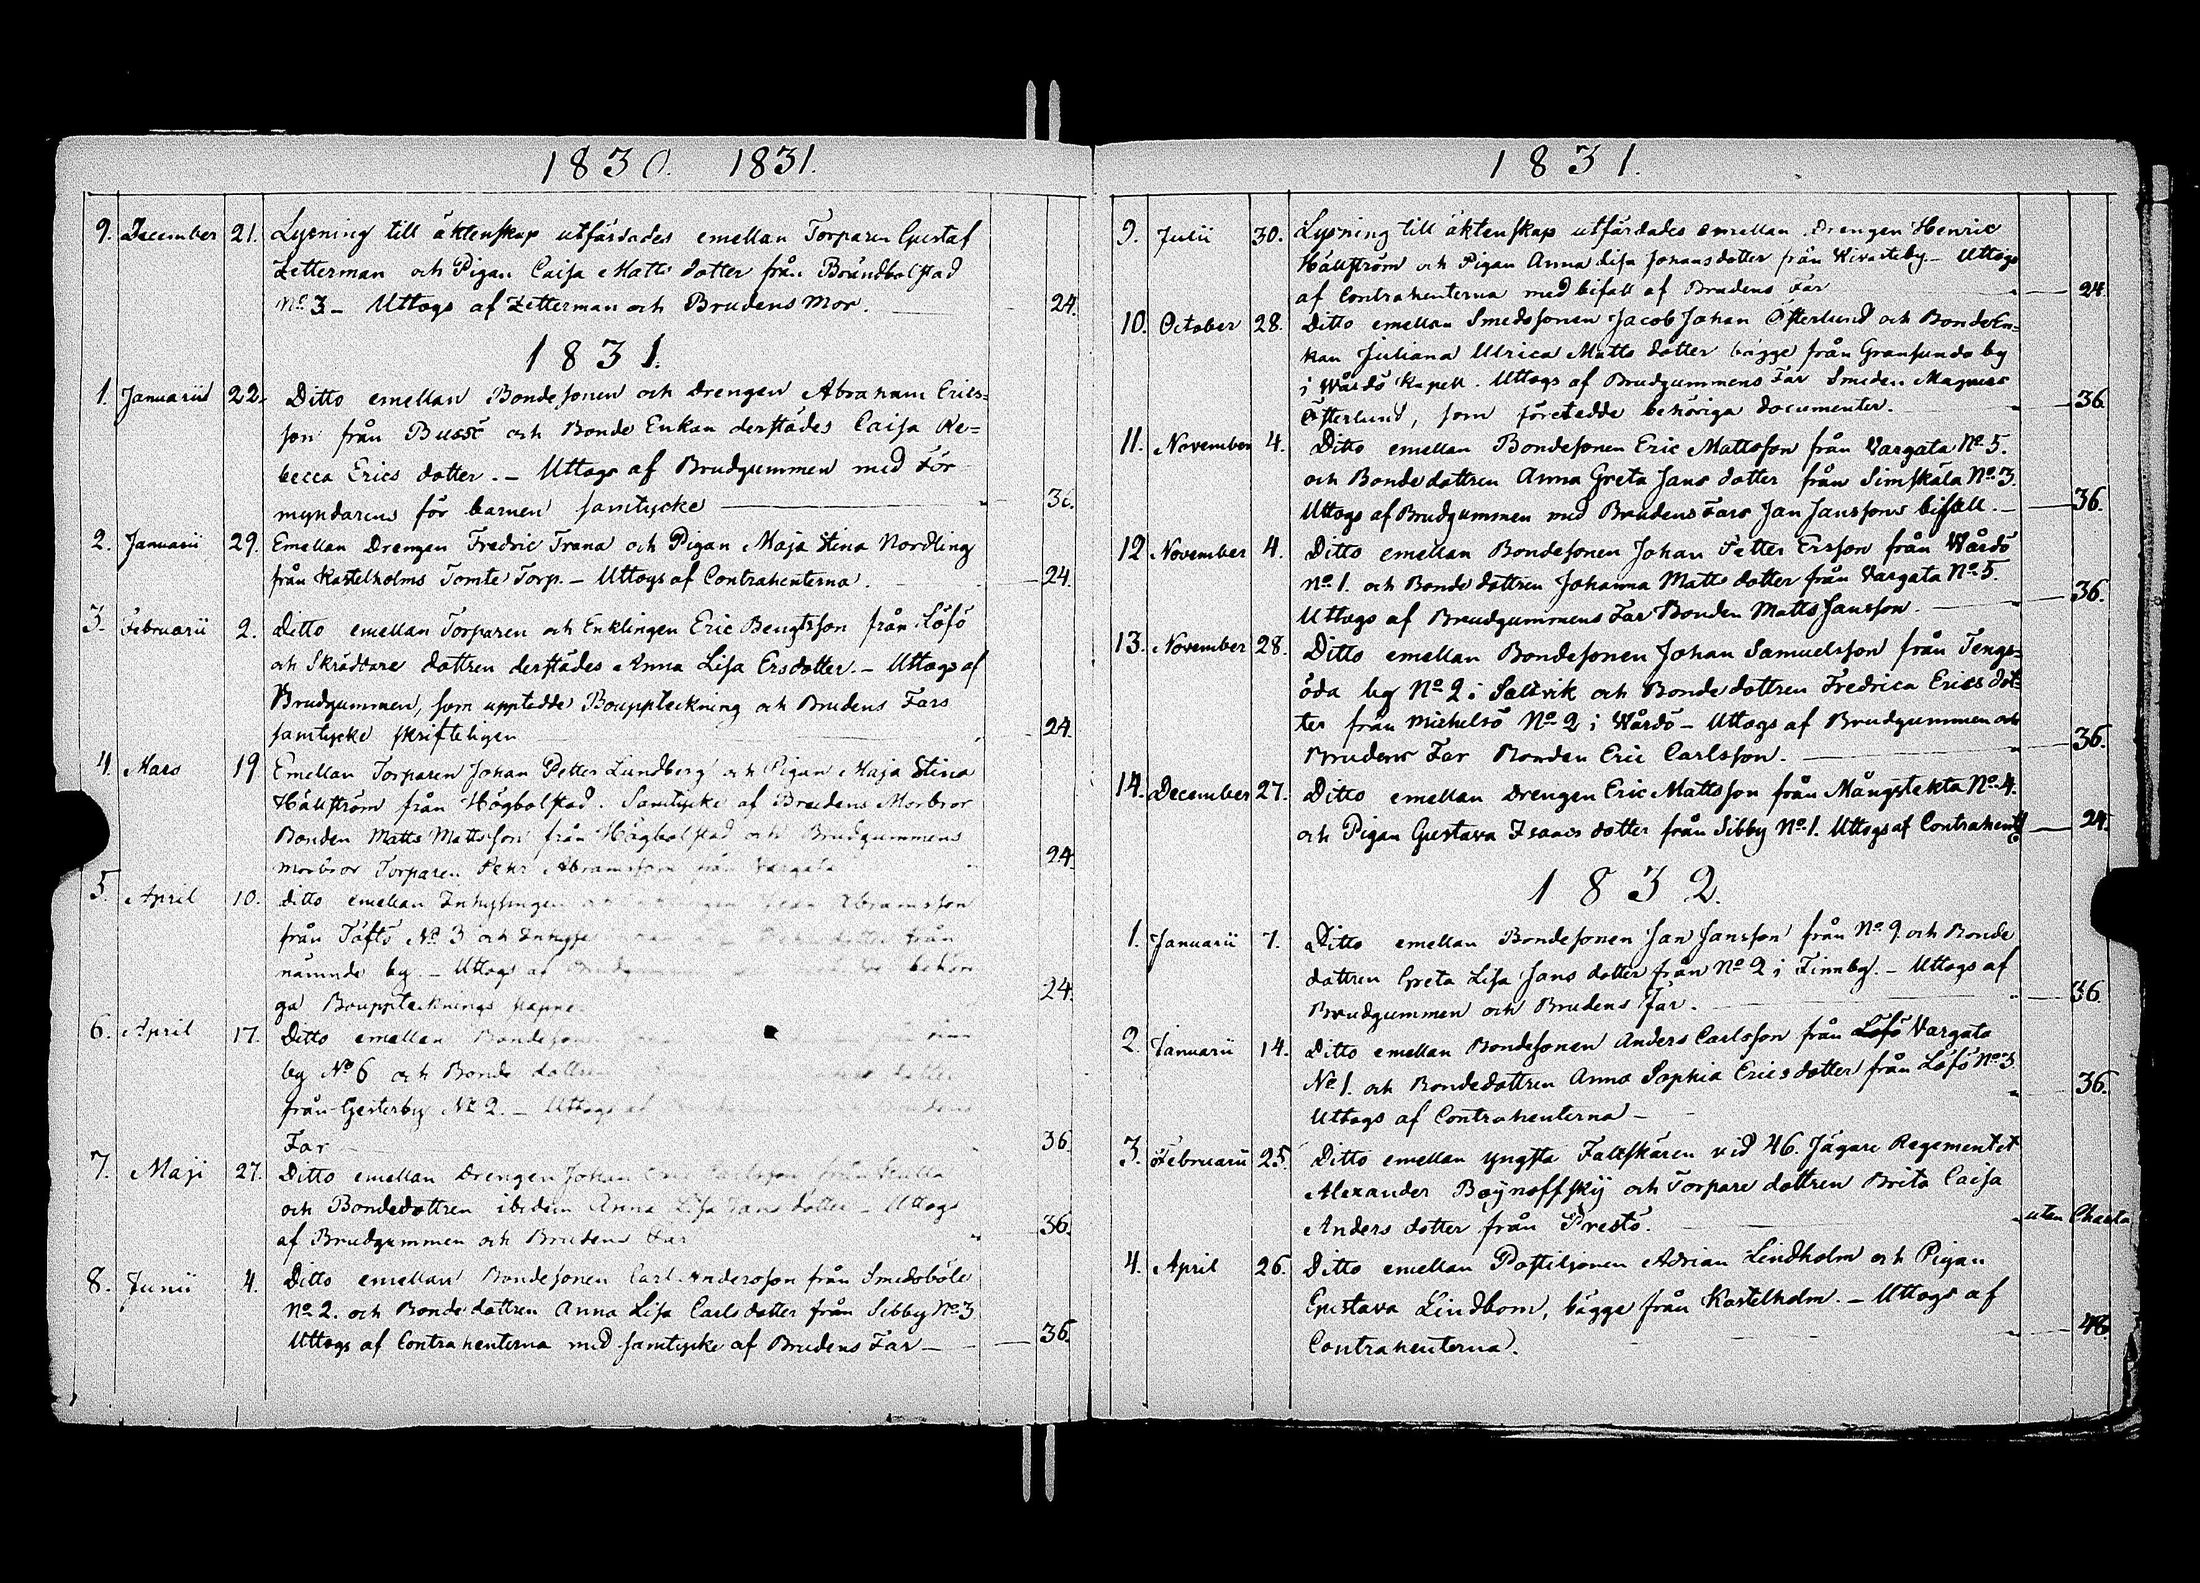 1830. 1831.
9. December 21. Lysning till äktenskap utfärdades emellan Torparen Gustaf
Zetterman och Pigan Caisa Matts dotter från Brändbolstad
No 3 – Uttogs af Zetterman och Brudens Mor. 24.
1831.
1. Januarii 22. Ditto emellan Bondesonen och Drengen Abraham Erics=
son från Bussö och Bonde Enkan derstädes Caisa Re=
becca Erics dotter. – Uttogs af Brudgummen med För
myndarens för barnen samtycke 36.
2. Januarii 29. Emellan Drengen Fredric Trana och Pigan Maja Stina Nordling
från Kastelholms Tomte Torp. – Uttogs af Contrahenterna. 24.
3. Februarii 2. Ditto emellan Torparen och Enklingen Eric Bengtsson från Löfö
och Skräddare dottren derstädes Anna Lisa Ersdotter. – Uttogs af
Brudgummen, som upptedde Bouppteckning och Brudens Fars
samtycke skrifteligen 24.
4. Mars 19 Emellan Torparen Johan Petter Lundberg och Pigan Maja Stina
Hällström från Högbolstad. Samtycke af Brudens Morbror
Bonden Matts Mattsson från Högbolstad och Brudgummens
morbror Torparen Pehr Abramsson från Vargata 24.
5. April 10. Ditto emellan Inhysingen Abramsson
från Töftö No 3 och Inhyses dotter från
nämnde by. – Uttogs af behöri
ga Boupptecknings 24.
6. April 17. Ditto emellan Bondesonen
by No 6 och Bonde dottren dotter
från Gesterby No 2. – Uttogs af Brudens
Far 36.
7. Maji 27. Ditto emellan Drengen Johan Carlsson från
och Bondedottren ibidem Anna Lisa Jans dotter – Uttogs
af Brudgummen och Brudens Far 36.
8. Junii 4. Ditto emellan Bondesonen Carl Andersson från Smedsböle
No 2. och Bonde dottren Anna Lisa Carls dotter från Sibby No 3
Uttogs af Contrahenterna med samtycke af Brudens Far – 36.
1831.
9. Julii 30. Lysning till äktenskap utfärdades emellan Drengen Henric
Hällström och Pigan Anna Lisa Johansdotter från Wivasteby – Uttogs
af Contrahenterna med bifall af Brudens Far 24.
10. October 28. Ditto emellan Smedssonen Jacob Johan Österlund och BondeEn=
kan Juliana Ulrica Matts dotter bägge från Gransunda by
i Wårdö Kapell. Uttogs af Brudgummens Far Smeden Magnus
Österlund, som företedde behöriga documenter. 36.
11. November 4. Ditto emellan Bondesonen Eric Mattsson från Vargata No 5.
och Bonde dottren Anna Greta Jans dotter från Simskäla No 3.
Uttogs af Brudgummen med Brudens Fars Jan Janssons bifall. – 36.
12 November 4. Ditto emellan Bondesonen Johan Petter Ersson från Wårdö
No 1. och Bonde dottren Johanna Matts dotter från Vargata No 5.
Uttogs af Brudgummens Far Bonden Matts Jansson. 36.
13. November 28. Ditto emellan Bondesonen Johan Samuelsson från Tengs=
öda by No 2 i Saltvik och Bonde dottren Fredrica Erics dot=
ter från Michelsö No 2 i Wårdö – Uttogs af Brudgummen och
Brudens Far Bonden Eric Carlsson. 36.
14. December 27. Ditto emellan Drengen Eric Mattsson från Mångstekta No 4.
och Pigan Gustava Isaacs dotter från Sibby No 1. Uttogs af Contrahent 24.
1832.
1. Januarii 7. Ditto emellan Bondesonen Jan Jansson från No 9. och Bonde
dottren Greta Lisa Jans dotter från No 2 i Finnby. – Uttogs af
Brudgummen och Brudens Far. 36
2. Januarii 14. Ditto emellan Bondesonen Anders Carlsson från Löfö Vargata
No 1. och Bondedottren Anna Sophia Erics dotter från Löfö No 3
Uttogs af Contrahenterna – 36.
3. Februarii 25. Ditto emellan yngsta Fältskären vid 46. Jägare Regementet
Alexander Boÿnoffskÿ och Torpare dottren Brita Caisa
Anders dotter från Prestö. utan Charta
4. April 26. Ditto emellan Postiljonen Adrian Lindholm och Pigan
Gustava Lindbom, bägge från Kastelholm. – Uttogs af
Contrahenterna. 48.